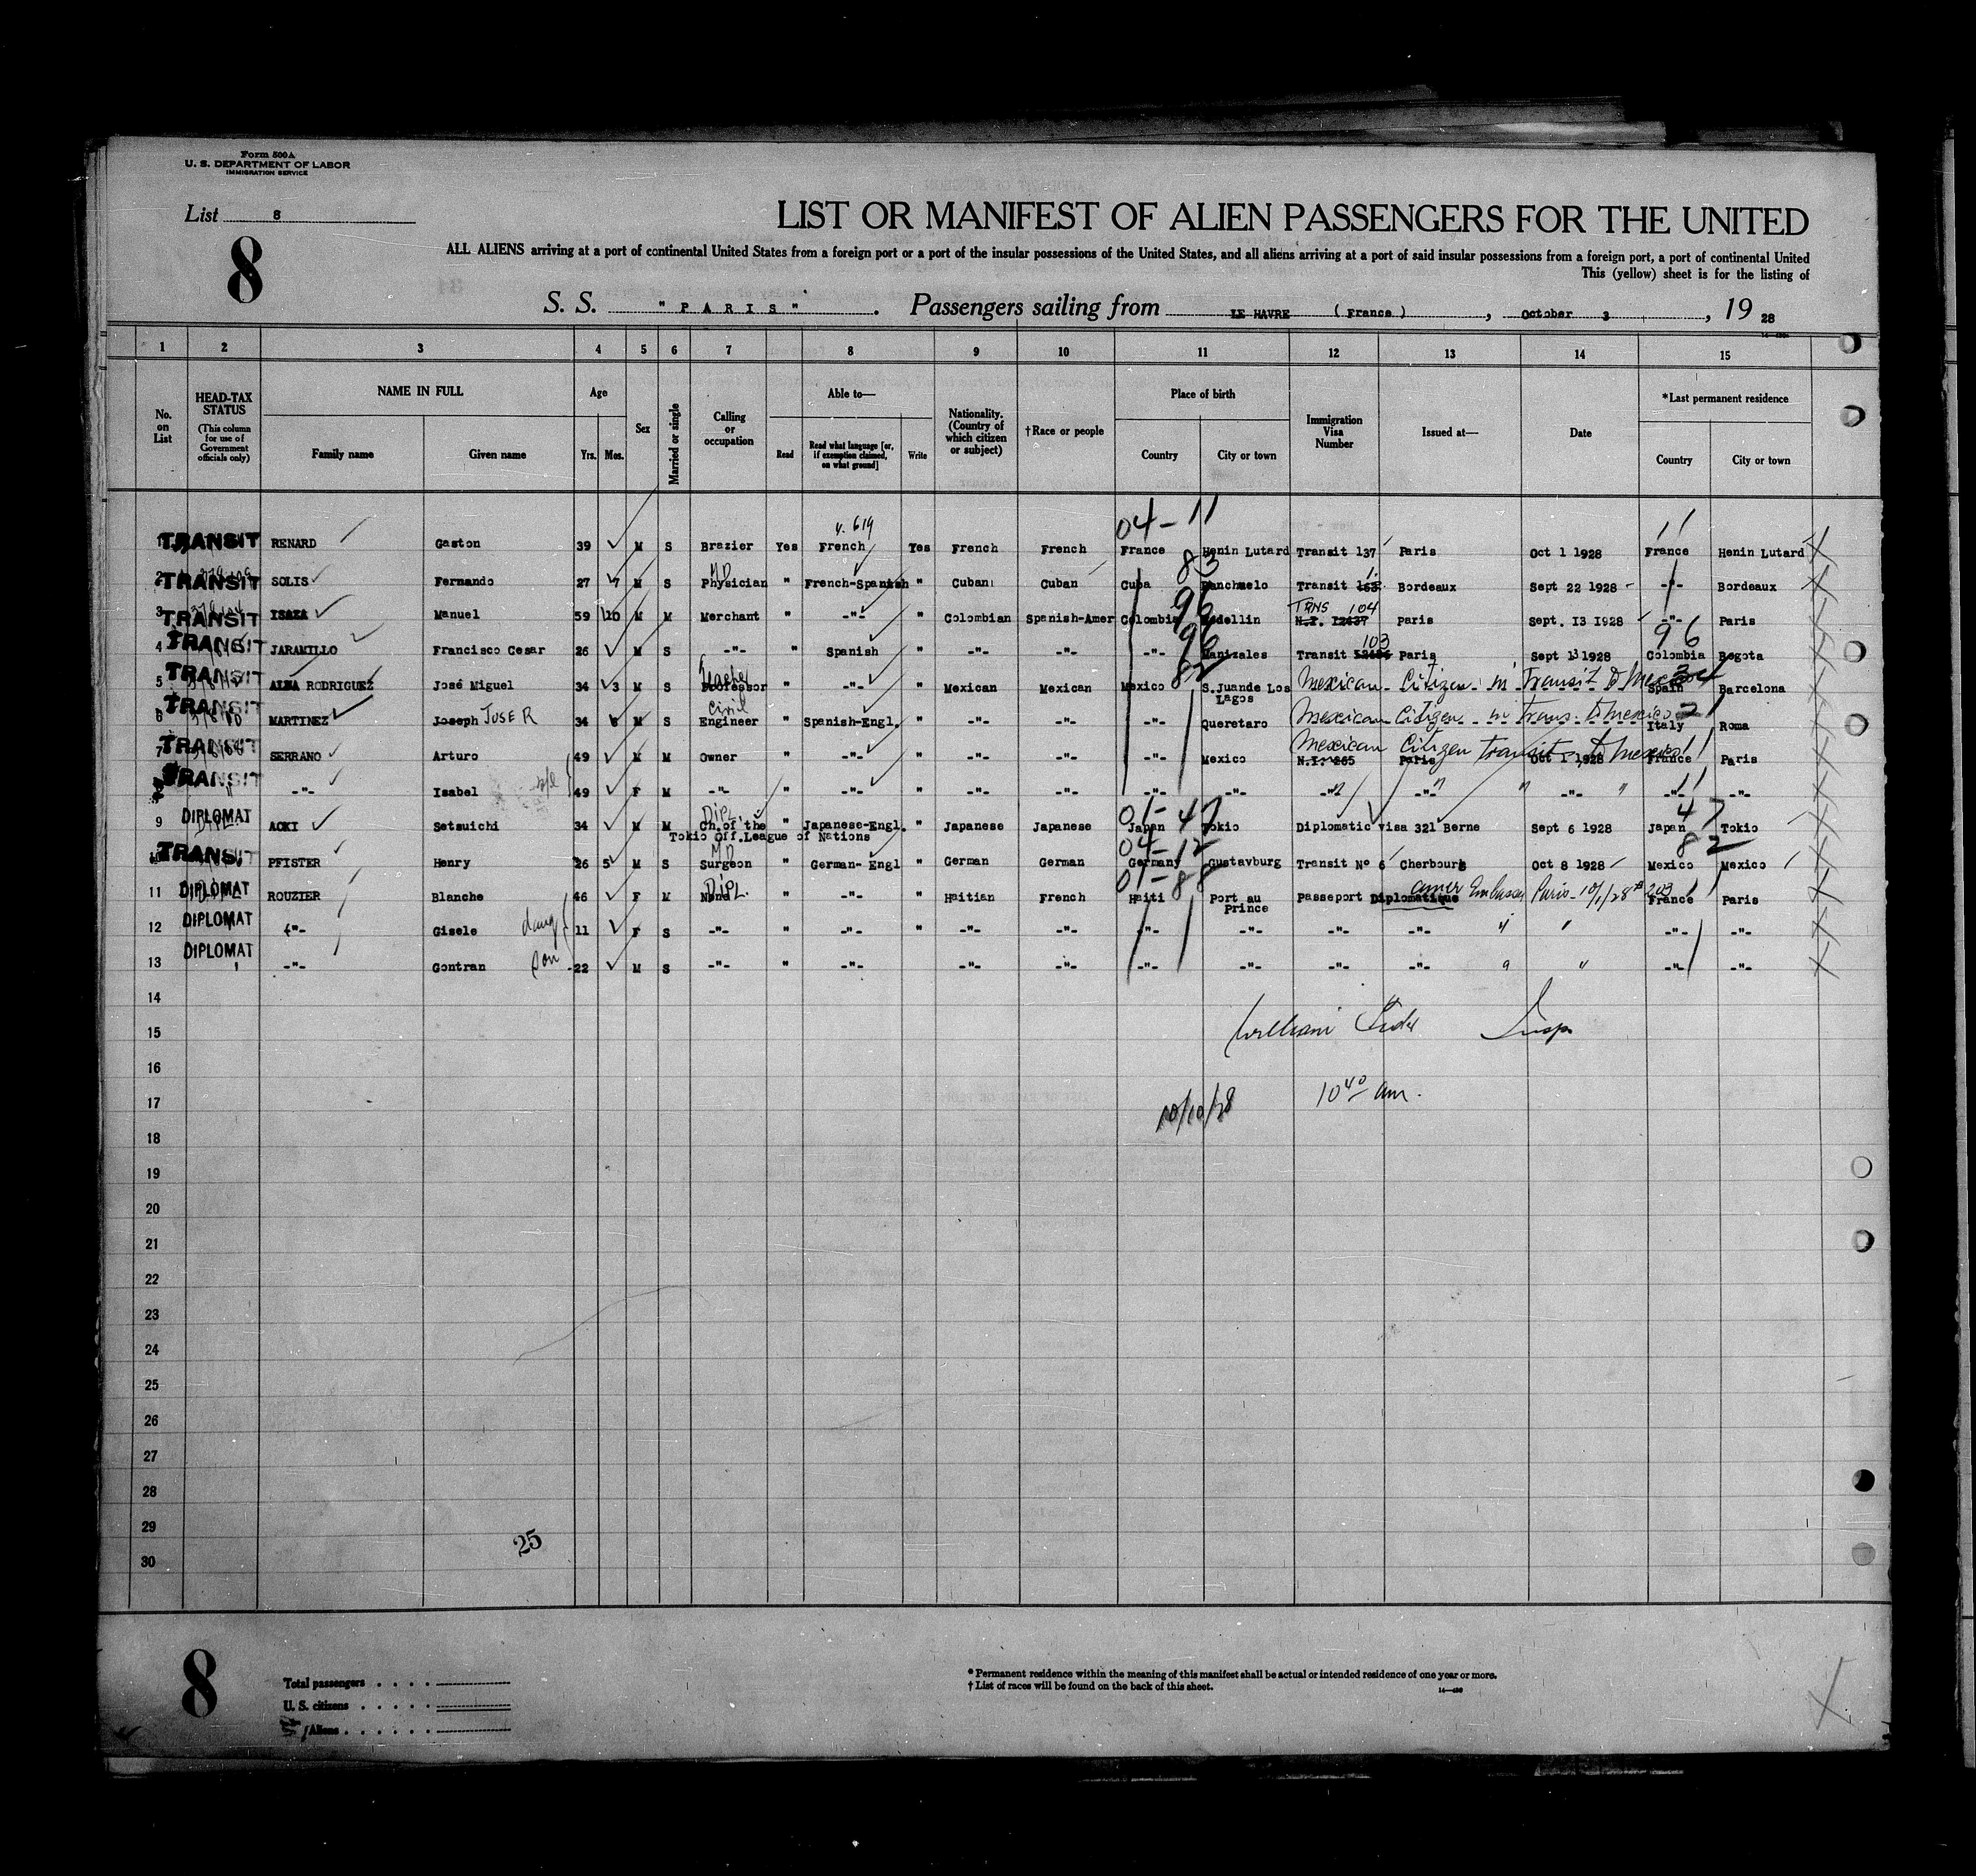 Form 500A
U. S. DEPARTMENT OF LABOR
IMMIGRATION SERVICE
List 8
8
LIST OR MANIFEST OF ALIEN PASSENGERS FOR THE UNITED
ALL ALIENS arriving at a port of continental United States from a foreign port or a port of the insular possessions of the United States, and all aliens arriving at a port of said insular possessions from a foreign port, a port of continental United
This (yellow) sheet is for the listing of
S. S. "PARIS". Passengers sailing from LE HAVRE (France), October 3, 1928
1 2 3 4 5 6 7 8 9 10 11 12 13 14 15
No. on List
HEAD-TAX STATUS (This column for use of Government officials only)
NAME IN FULL Family name Given name
Age Yrs. Mos.
Sex
Married or single
Calling or occupation
Able to— Read Read what language [or, if exemption claimed, on what ground] Write
Nationality. (Country of which citizen or subject)
†Race or people
Place of birth Country City or town
Immigration Visa Number
Issued at—
Date
*Last permanent residence Country City or town
04-11 11
1 TRANSIT RENARD Gaston 39 M S Brazier Yes French Yes French French France Henin Lutard Transit 137 Paris Oct 1 1928 France Henin Lutard
83
2 TRANSIT SOLIS Fernando 27 7 M S MD Physician " French-Spanish " Cuban Cuban Cuba Ranchuelo Transit Bordeaux Sept 22 1928 -"- Bordeaux
96 TRNS 104
3 TRANSIT ISAZA Manuel 59 10 M M Merchant " -"- " Colombian Spanish-Amer Colombia Medellin N.I. 12437 Paris Sept. 13 1928 -"- Paris
96 103 96
4 TRANSIT JARAMILLO Francisco Cesar 26 M S -"- " Spanish " -"- -"- -"- Manizales Transit Paris Sept 13 1928 Colombia Bogota
82 Teacher
5 TRANSIT ALBA RODRIGUEZ José Miguel 34 3 M S Professor " -"- " Mexican Mexican Mexico S.Juande Los Lagos Mexican Citizen in Transit to Mexico Spain Barcelona
Civil
6 TRANSIT MARTINEZ Joseph JOSE R 34 6 M S Engineer " Spanish-Engl. " -"- -"- -"- Queretaro Mexican Citizen in Trans. to Mexico Italy Roma
Mexican Citizen Transit to Mexico 11
7 TRANSIT SERRANO Arturo 49 M M Owner " -"- " -"- -"- -"- Mexico N.I. 265 Paris Oct 1 1928 France Paris
11
TRANSIT -"- Isabel 49 F M -"- " -"- " -"- -"- -"- -"- -"- -"- -"- -"- -"-
DIPL 01-47 47
9 DIPLOMAT AOKI Setsuichi 34 M M Ch.of the " Japanese-Engl. " Japanese Japanese Japan Tokio Diplomatic visa 321 Berne Sept 6 1928 Japan Tokio
Tokio Off.League of Nations
MD 04-12 82
10 TRANSIT PFISTER Henry 26 5 M S Surgeon " German- Engl " German German Germany Gustavburg Transit No 6 Cherbourg Oct 8 1928 Mexico Mexico
DIPL. 01-88
11 DIPLOMAT ROUZIER Blanche 46 F M None " -"- " Haitian French Haiti Port au Prince Passeport Diplomatique Amer Embassy Paris-10/1/28 #203 France Paris
12 DIPLOMAT -"- Gisele daug 11 F S -"- " -"- " -"- -"- -"- -"- -"- -"- " " -"- -"-
13 DIPLOMAT -"- Gontran son 22 M S -"- " -"- -"- -"- -"- -"- -"- -"- " " -"- -"-
14
15 William Insp
16
17 10/10/28 10 40 am.
18
19
20
21
22
23
24
25
26
27
28
29
25
30
8
Total passengers
U. S. citizens
Aliens
* Permanent residence within the meaning of this manifest shall be actual or intended residence of one year or more.
† List of races will be found on the back of this sheet.